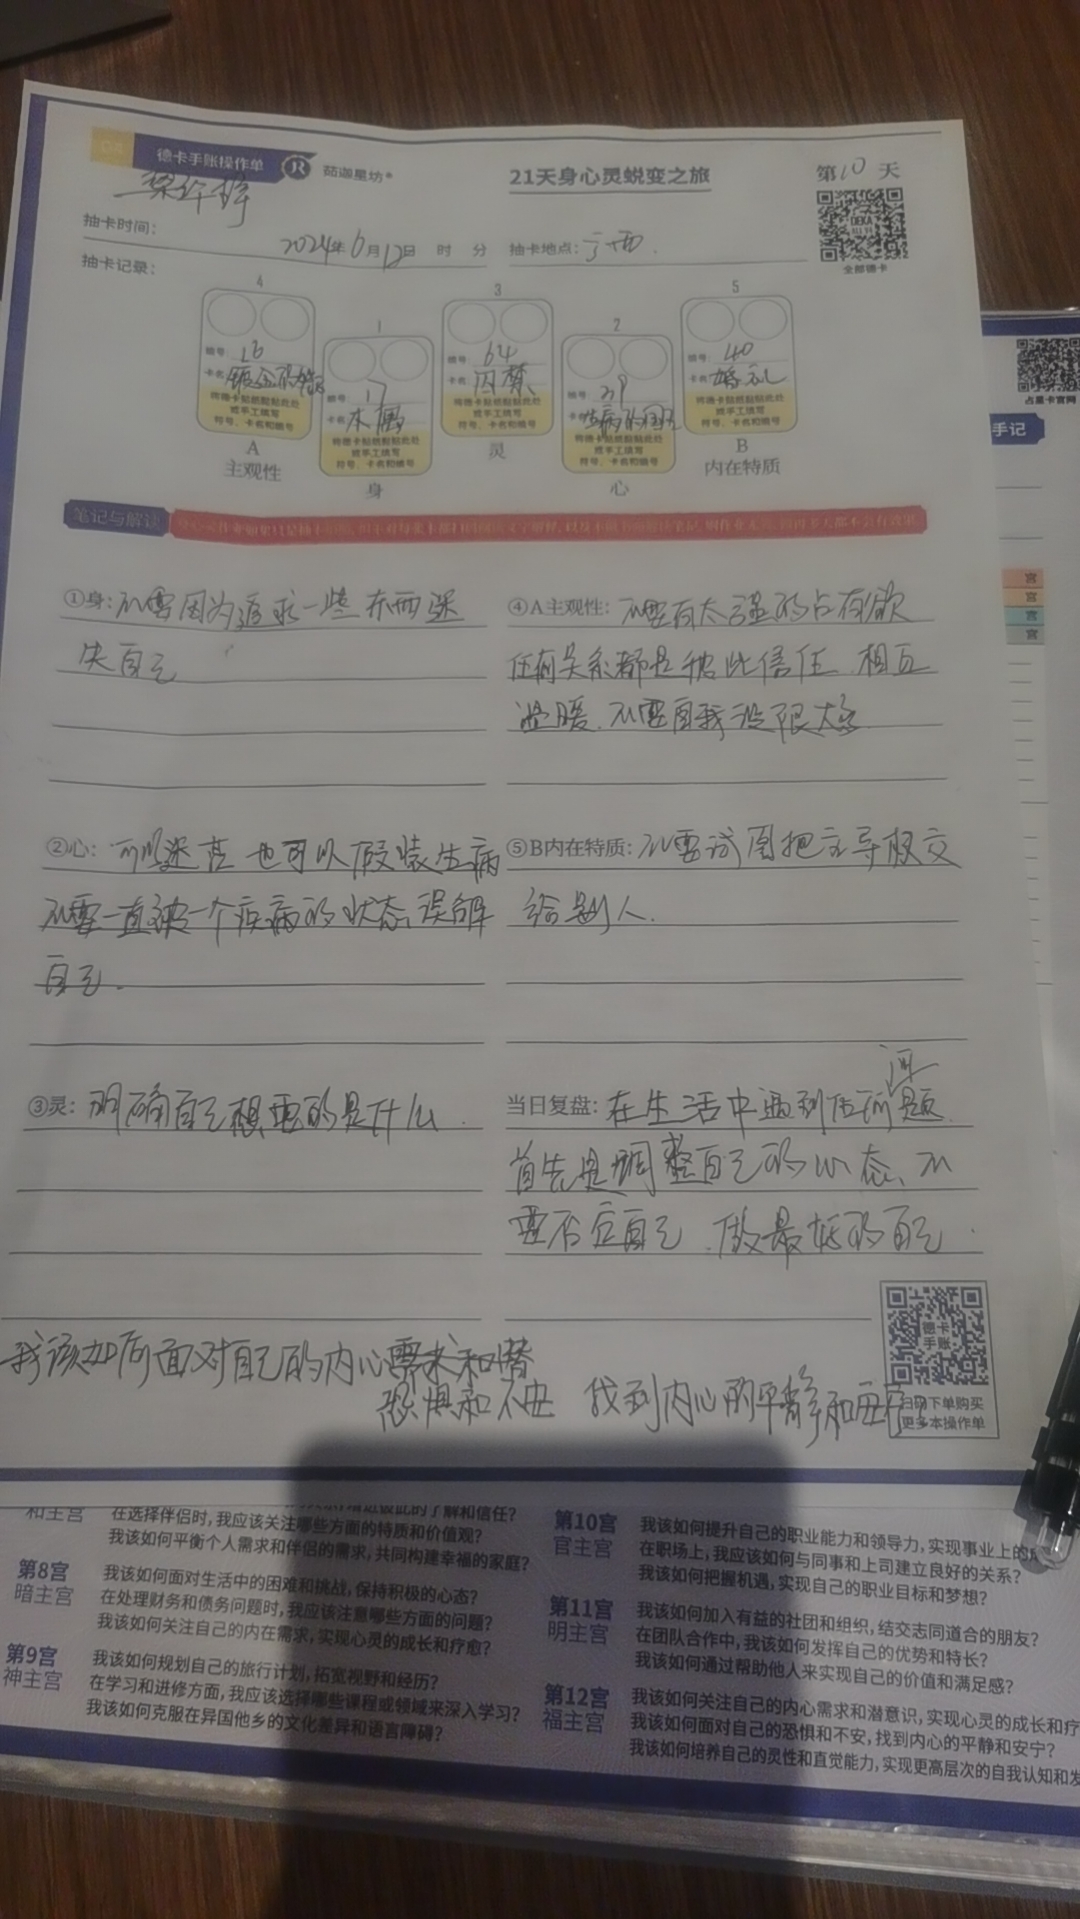 04 德卡手账操作单 JR 茹迦星坊® 21天身心灵蜕变之旅 第10天
DEKA
全部德卡
抽卡时间: 2024年6月12日 时 分 抽卡地点:
抽卡记录:
4
编号: 16
卡名
将德卡贴纸粘贴此处
或手工填写
符号、卡名和编号
A
主观性
1
编号: 17
卡名: 木偶
将德卡贴纸粘贴此处
或手工填写
符号、卡名和编号
身
3
编号: 64
卡名: 囚禁
将德卡贴纸粘贴此处
或手工填写
符号、卡名和编号
灵
2
编号: 29
卡名: 生病的国王
将德卡贴纸粘贴此处
或手工填写
符号、卡名和编号
心
5
编号: 40
卡名: 婚礼
将德卡贴纸粘贴此处
或手工填写
符号、卡名和编号
B
内在特质
占星卡官网
手记
宫
宫
宫
宫
笔记与解读
①身: 不要因为追求一些东西迷
失自己
②心: 可以迷茫 也可以假装生病
不要一直被一个疾病的状态误解
自己.
③灵: 明确自己想要的是什么.
④A主观性: 不要有太强的占有欲
任何关系都是彼此信任.相互
温暖.不要自我设限太多
⑤B内在特质: 不要试图把主导权交
给别人.
当日复盘: 在生活中遇到任何问题.
首先是调整自己的心态、不
要否定自己.做最好的自己.
德卡
手账
扫码下单购买
更多本操作单
我该如何面对自己的内心需求和潜
恐惧和不安 找到内心的平静和安宁
和主宫
在选择伴侣时,我应该关注哪些方面的特质和价值观?
我该如何平衡个人需求和伴侣的需求,共同构建幸福的家庭?
第8宫
暗主宫
我该如何面对生活中的困难和挑战,保持积极的心态?
在处理财务和债务问题时,我应该注意哪些方面的问题?
我该如何关注自己的内在需求,实现心灵的成长和疗愈?
第9宫
神主宫
我该如何规划自己的旅行计划,拓宽视野和经历?
在学习和进修方面,我应该选择哪些课程或领域来深入学习?
我该如何克服在异国他乡的文化差异和语言障碍?
第10宫
官主宫
我该如何提升自己的职业能力和领导力,实现事业上的
在职场上,我应该如何与同事和上司建立良好的关系?
我该如何把握机遇,实现自己的职业目标和梦想?
第11宫
明主宫
我该如何加入有益的社团和组织,结交志同道合的朋友?
在团队合作中,我该如何发挥自己的优势和特长?
我该如何通过帮助他人来实现自己的价值和满足感?
第12宫
福主宫
我该如何关注自己的内心需求和潜意识,实现心灵的成长和疗
我该如何面对自己的恐惧和不安,找到内心的平静和安宁?
我该如何培养自己的灵性和直觉能力,实现更高层次的自我认知和发